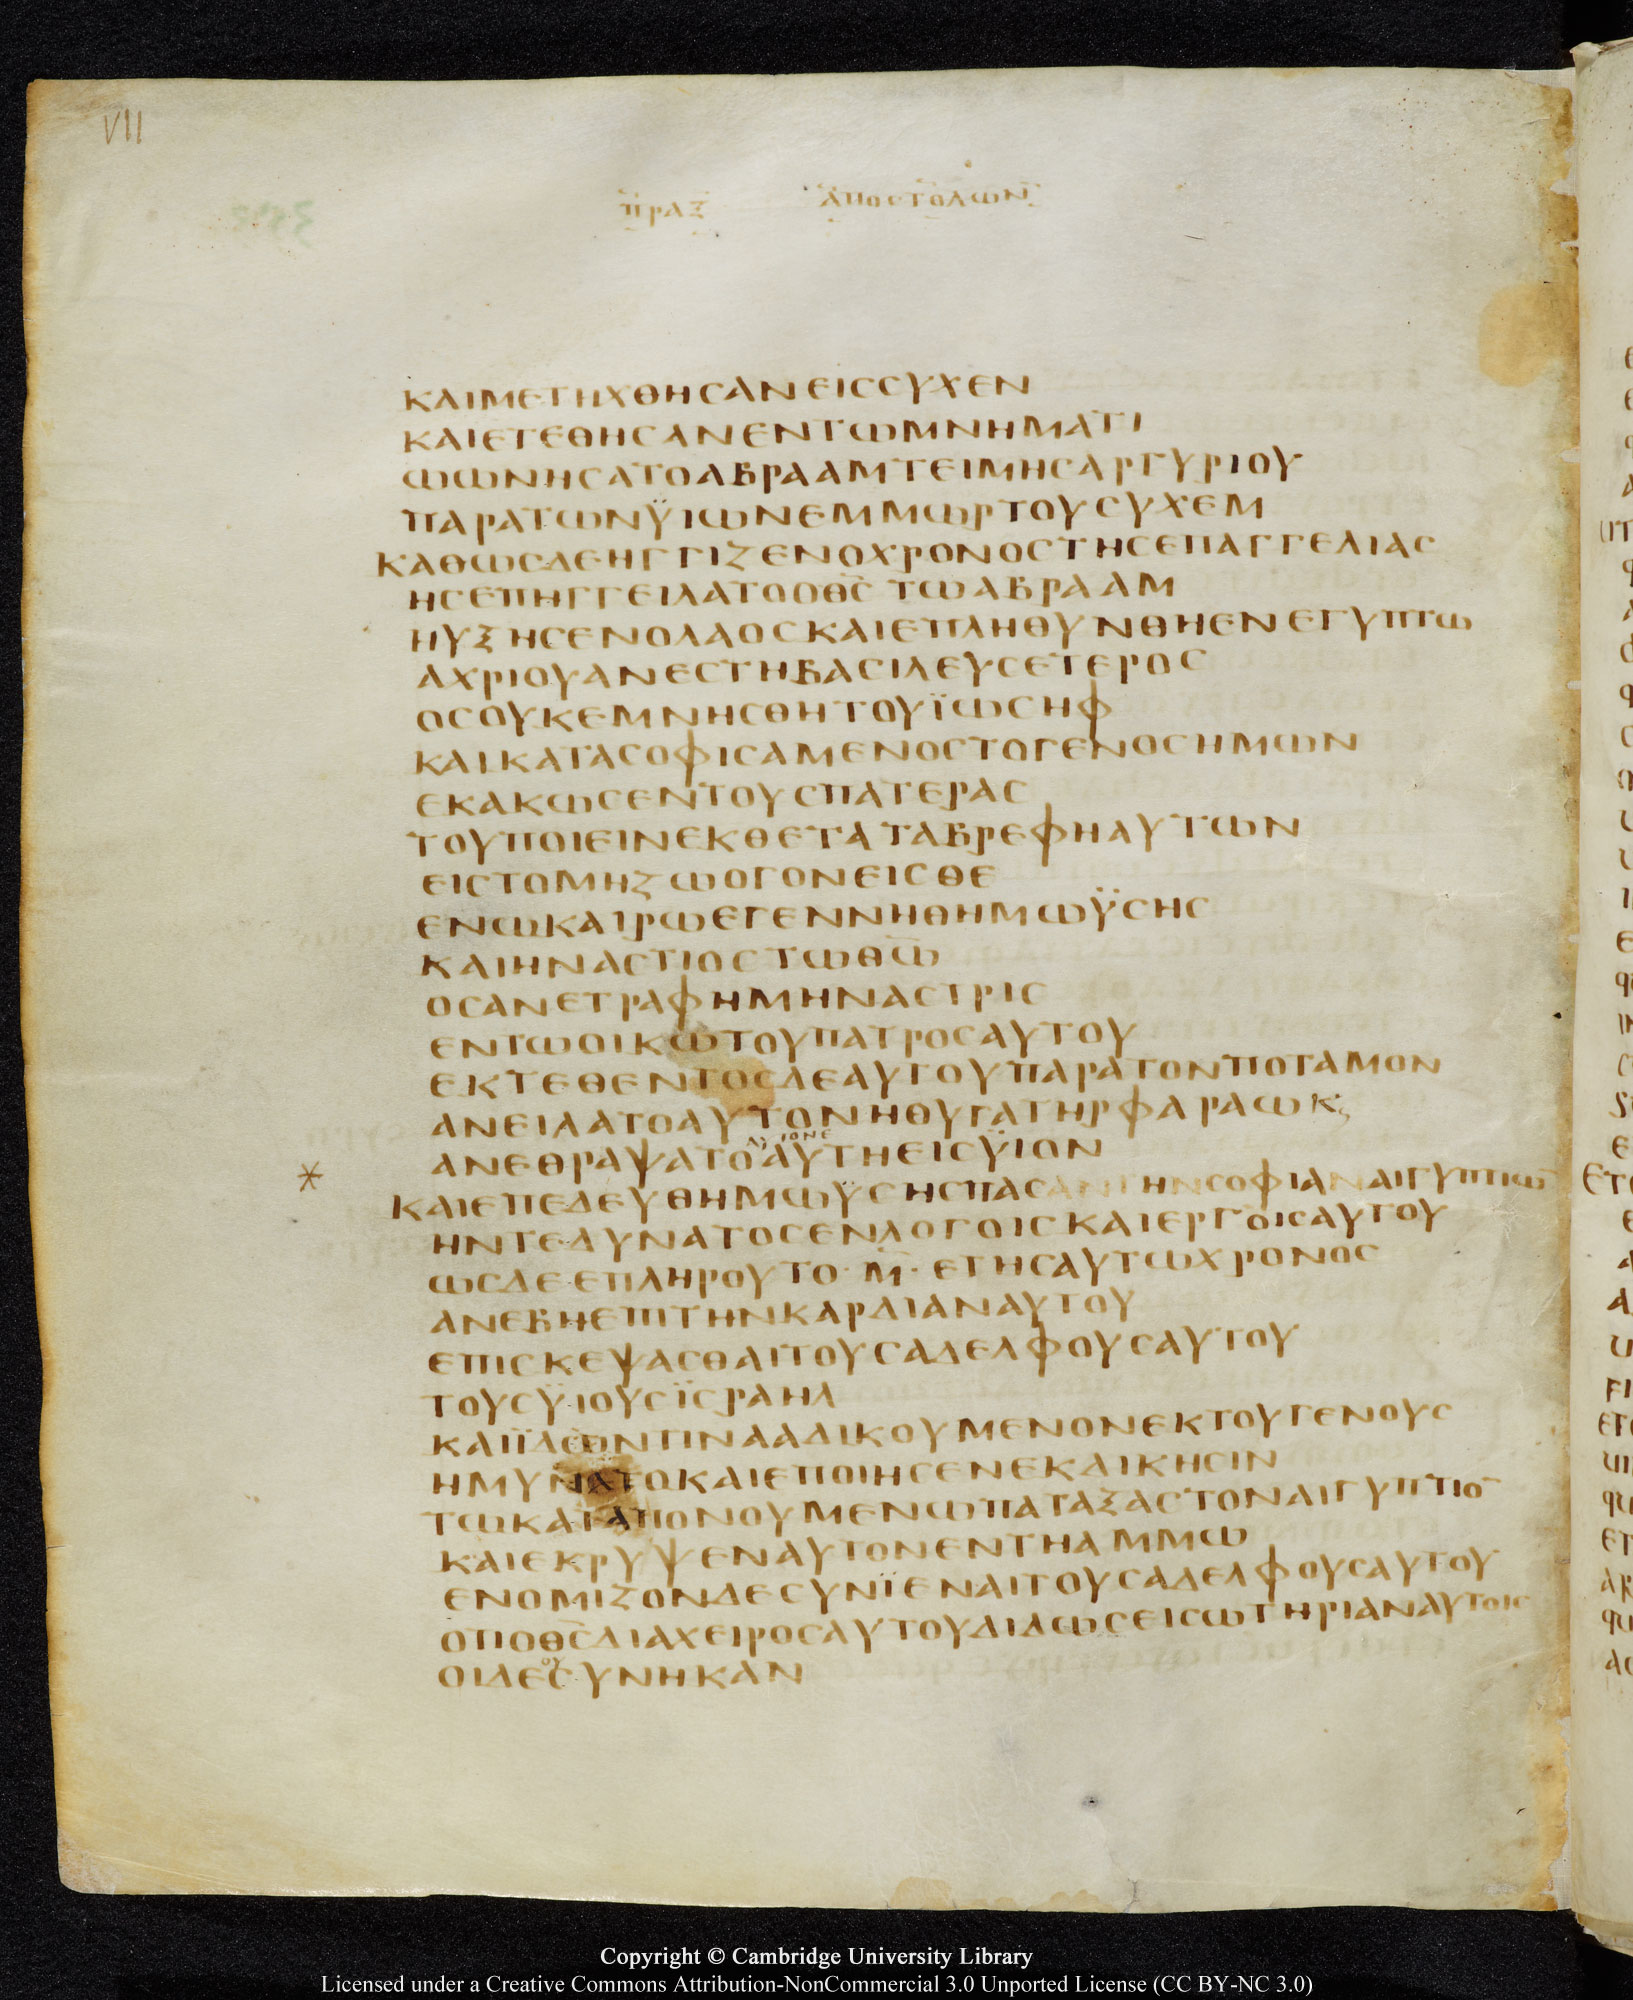 VII
ΠΡΑΞ ΑΠΟΣΤΟΛΩΝ
ΚΑΙΜΕΤΗΧΘΗСΑΝΕΙССΥΧΕΝ
ΚΑΙΕΤΕΘΗСΑΝΕΝΤΩΜΝΗΜΑΤΙ
ΩΩΝΗСΑΤΟΑΒΡΑΑΜΤΕΙΜΗСΑΡΓΥΡΙΟΥ
ΠΑΡΑΤΩΝΫΙΩΝΕΜΜΩΡΤΟΥСΥΧΕΜ
ΚΑΘΩСΔΕΗΓΓΙΖΕΝΟΧΡΟΝΟСΤΗСΕΠΑΓΓΕΛΙΑС
ΗСΕΠΗΓΓΕΙΛΑΤΟΟΘ̅С̅ ΤΩΑΒΡΑΑΜ
ΗΥΞΗСΕΝΟΛΑΟСΚΑΙΕΠΛΗΘΥΝΘΗΕΝΕΓΥΠΤΩ
ΑΧΡΙΟΥΑΝΕСΤΗΒΑСΙΛΕΥСΕΤΕΡΟС
ΟСΟΥΚΕΜΝΗСΘΗΤΟΥΪΩСΗΦ
ΚΑΙΚΑΤΑСΟΦΙСΑΜΕΝΟСΤΟΓΕΝΟСΗΜΩΝ
ΕΚΑΚΩСΕΝΤΟΥСΠΑΤΕΡΑС
ΤΟΥΠΟΙΕΙΝΕΚΘΕΤΑΤΑΒΡΕΦΗΑΥΤΩΝ
ΕΙСΤΟΜΗΖΩΟΓΟΝΕΙСΘΕ
ΕΝΩΚΑΙΡΩΕΓΕΝΝΗΘΗΜΩΫСΗС
ΚΑΙΗΝΑСΤΙΟСΤΩΘ̅Ω̅
ΟСΑΝΕΤΡΑΦΗΜΗΝΑСΤΡΙС
ΕΝΤΩΟΙΚΩΤΟΥΠΑΤΡΟСΑΥΤΟΥ
ΕΚΤΕΘΕΝΤΟСΔΕΑΥΤΟΥΠΑΡΑΤΟΝΠΟΤΑΜΟΝ
ΑΝΕΙΛΑΤΟΑΥΤΟΝΗΘΥΓΑΤΗΡΦΑΡΑΩΚϛ
ΑΝΕΘΡΑΨΑΤΟΑΥΤΗΕΙСΫΙΟΝ
ΚΑΙΕΠΕΔΕΥΘΗΜΩΫСΗСΠΑСΑΝΤΗΝСΟΦΙΑΝΑΙΓΥΠΤΙΩ̅
ΗΝΤΕΔΥΝΑΤΟСΕΝΛΟΓΟΙСΚΑΙΕΡΓΟΙСΑΥΤΟΥ
ΩСΔΕΕΠΛΗΡΟΥΤΟ·Μ̅·ΕΤΗСΑΥΤΩΧΡΟΝΟС
ΑΝΕΒΗΕΠΙΤΗΝΚΑΡΔΙΑΝΑΥΤΟΥ
ΕΠΙСΚΕΨΑСΘΑΙΤΟΥСΑΔΕΛΦΟΥСΑΥΤΟΥ
ΤΟΥСΫΙΟΥСΪСΡΑΗΛ
ΚΑΙΪΔΩΝΤΙΝΑΑΔΙΚΟΥΜΕΝΟΝΕΚΤΟΥΓΕΝΟΥС
ΗΜΥΝΑΤΟΚΑΙΕΠΟΙΗСΕΝΕΚΔΙΚΗСΙΝ
ΤΩΚΑΤΑΠΟΝΟΥΜΕΝΩΠΑΤΑΞΑСΤΟΝΑΙΓΥΠΤΙΟ̅
ΚΑΙΕΚΡΥΨΕΝΑΥΤΟΝΕΝΤΗΑΜΜΩ
ΕΝΟΜΙΖΟΝΔΕСΥΝΪΕΝΑΙΤΟΥСΑΔΕΛΦΟΥСΑΥΤΟΥ
ΟΤΙΟΘ̅С̅ΔΙΑΧΕΙΡΟСΑΥΤΟΥΔΙΔΩСΕΙСΩΤΗΡΙΑΝΑΥΤΟΙС
ΟΙΔΕΟΥСΥΝΗΚΑΝ
Copyright © Cambridge University Library
Licensed under a Creative Commons Attribution-NonCommercial 3.0 Unported License (CC BY-NC 3.0)